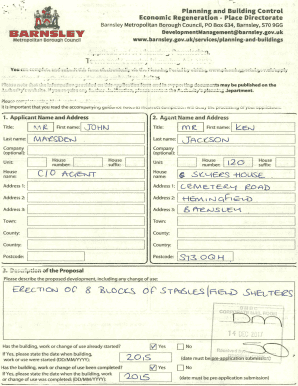 Planning and Building Control
Economic Regeneration - Place Directorate
Barnsley Metropolitan Borough Council, PO Box 634, Barnsley, S70 9GG
DevelopmentManagement@barnsley.gov.uk
www.barnsley.gov.uk/services/planning-and-buildings
BARNSLEY
Metropolitan Borough Council
may be published on the
department.
1. Applicant Name and Address
Title: MR First name: JOHN
Last name: MARSDEN
Company (optional):
Unit: House number: House suffix:
House name: C/O AGENT
Address 1:
Address 2:
Address 3:
Town:
County:
Country:
Postcode:
2. Agent Name and Address
Title: MR First name: KEN
Last name: JACKSON
Company (optional):
Unit: House number: 120 House suffix:
House name: SKYERS HOUSE
Address 1: CEMETERY ROAD
Address 2: HEMINGFIELD
Address 3: BARNSLEY
Town:
County:
Country:
Postcode: S73 0QH
3. Description of the Proposal
Please describe the proposed development, including any change of use:
ERECTION OF 8 BLOCKS OF STABLES/FIELD SHELTERS
14 DEC 2017
Has the building, work or change of use already started? Yes No
If Yes, please state the date when building, work or use were started (DD/MM/YYYY): 2015 (date must be pre-application submission)
Has the building, work or change of use been completed? Yes No
If Yes, please state the date when the building, work or change of use was completed (DD/MM/YYYY): 2015 (date must be pre-application submission)